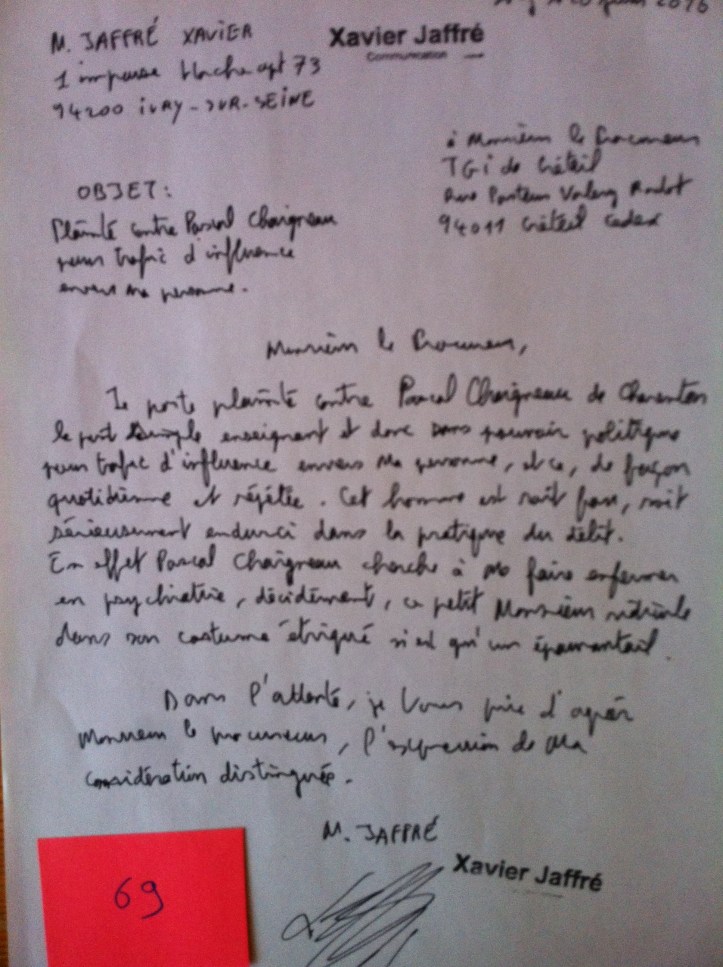 M. JAFFRÉ XAVIER
Xavier Jaffré
Communication
1 impasse apt 73
94200 IVRY-SUR-SEINE
à Monsieur le Procureur
TGI de Créteil
Rue Pasteur Valery Radot
94011 Créteil Cedex
OBJET:
Plainte contre Pascal Chaigneau
pour trafic d'influence
envers ma personne.
Monsieur le Procureur,
Je porte plainte contre Pascal Chaigneau de Charenton
le pont simple enseignant et donc sans pouvoir politique
pour trafic d'influence envers ma personne, et ce, de façon
quotidienne et répétée. Cet homme est soit fou, soit
sérieusement endurci dans la pratique du délit.
En effet Pascal Chaigneau cherche à me faire enfermer
en psychiatrie, décidément, ce petit Monsieur ridicule
dans son costume étriqué n'est qu'un épouvantail.
Dans l'attente, je vous prie d'agréer
Monsieur le procureur, l'expression de ma
considération distinguée.
M. JAFFRÉ
Xavier Jaffré
69